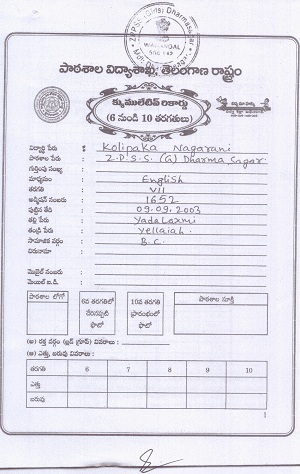 Z.P.S.S. (Girls) Dharmasagar
WARANGAL
పాఠశాల విద్యాశాఖ, తెలంగాణ రాష్ట్రం
క్యుములేటివ్ రికార్డు
(6 నుండి 10 తరగతులు)
విద్యార్థి పేరు : Kolipaka Nagarani
పాఠశాల పేరు : Z.P.S.S. (G) Dharma Sagar
గుర్తింపు సంఖ్య :
మాధ్యమం : English
తరగతి : VII
అడ్మిషన్ నంబరు : 1652
పుట్టిన తేది : 09.09.2003
తల్లి పేరు : Yada Laxmi
తండ్రి పేరు : Yellaiah
సామాజిక వర్గం : B.C.
చిరునామా :
మొబైల్ నంబరు :
మెయిల్ ఐ.డి. :
పాఠశాల లోగో
6వ తరగతిలో చేరినప్పటి ఫొటో
10వ తరగతి ప్రారంభంలో ఫొటో
పాఠశాల సూక్తి
(అ) రక్త వర్గం (బ్లడ్ గ్రూప్) వివరాలు :
(ఆ) ఎత్తు, బరువు వివరాలు :
తరగతి 6 7 8 9 10
ఎత్తు
బరువు
1